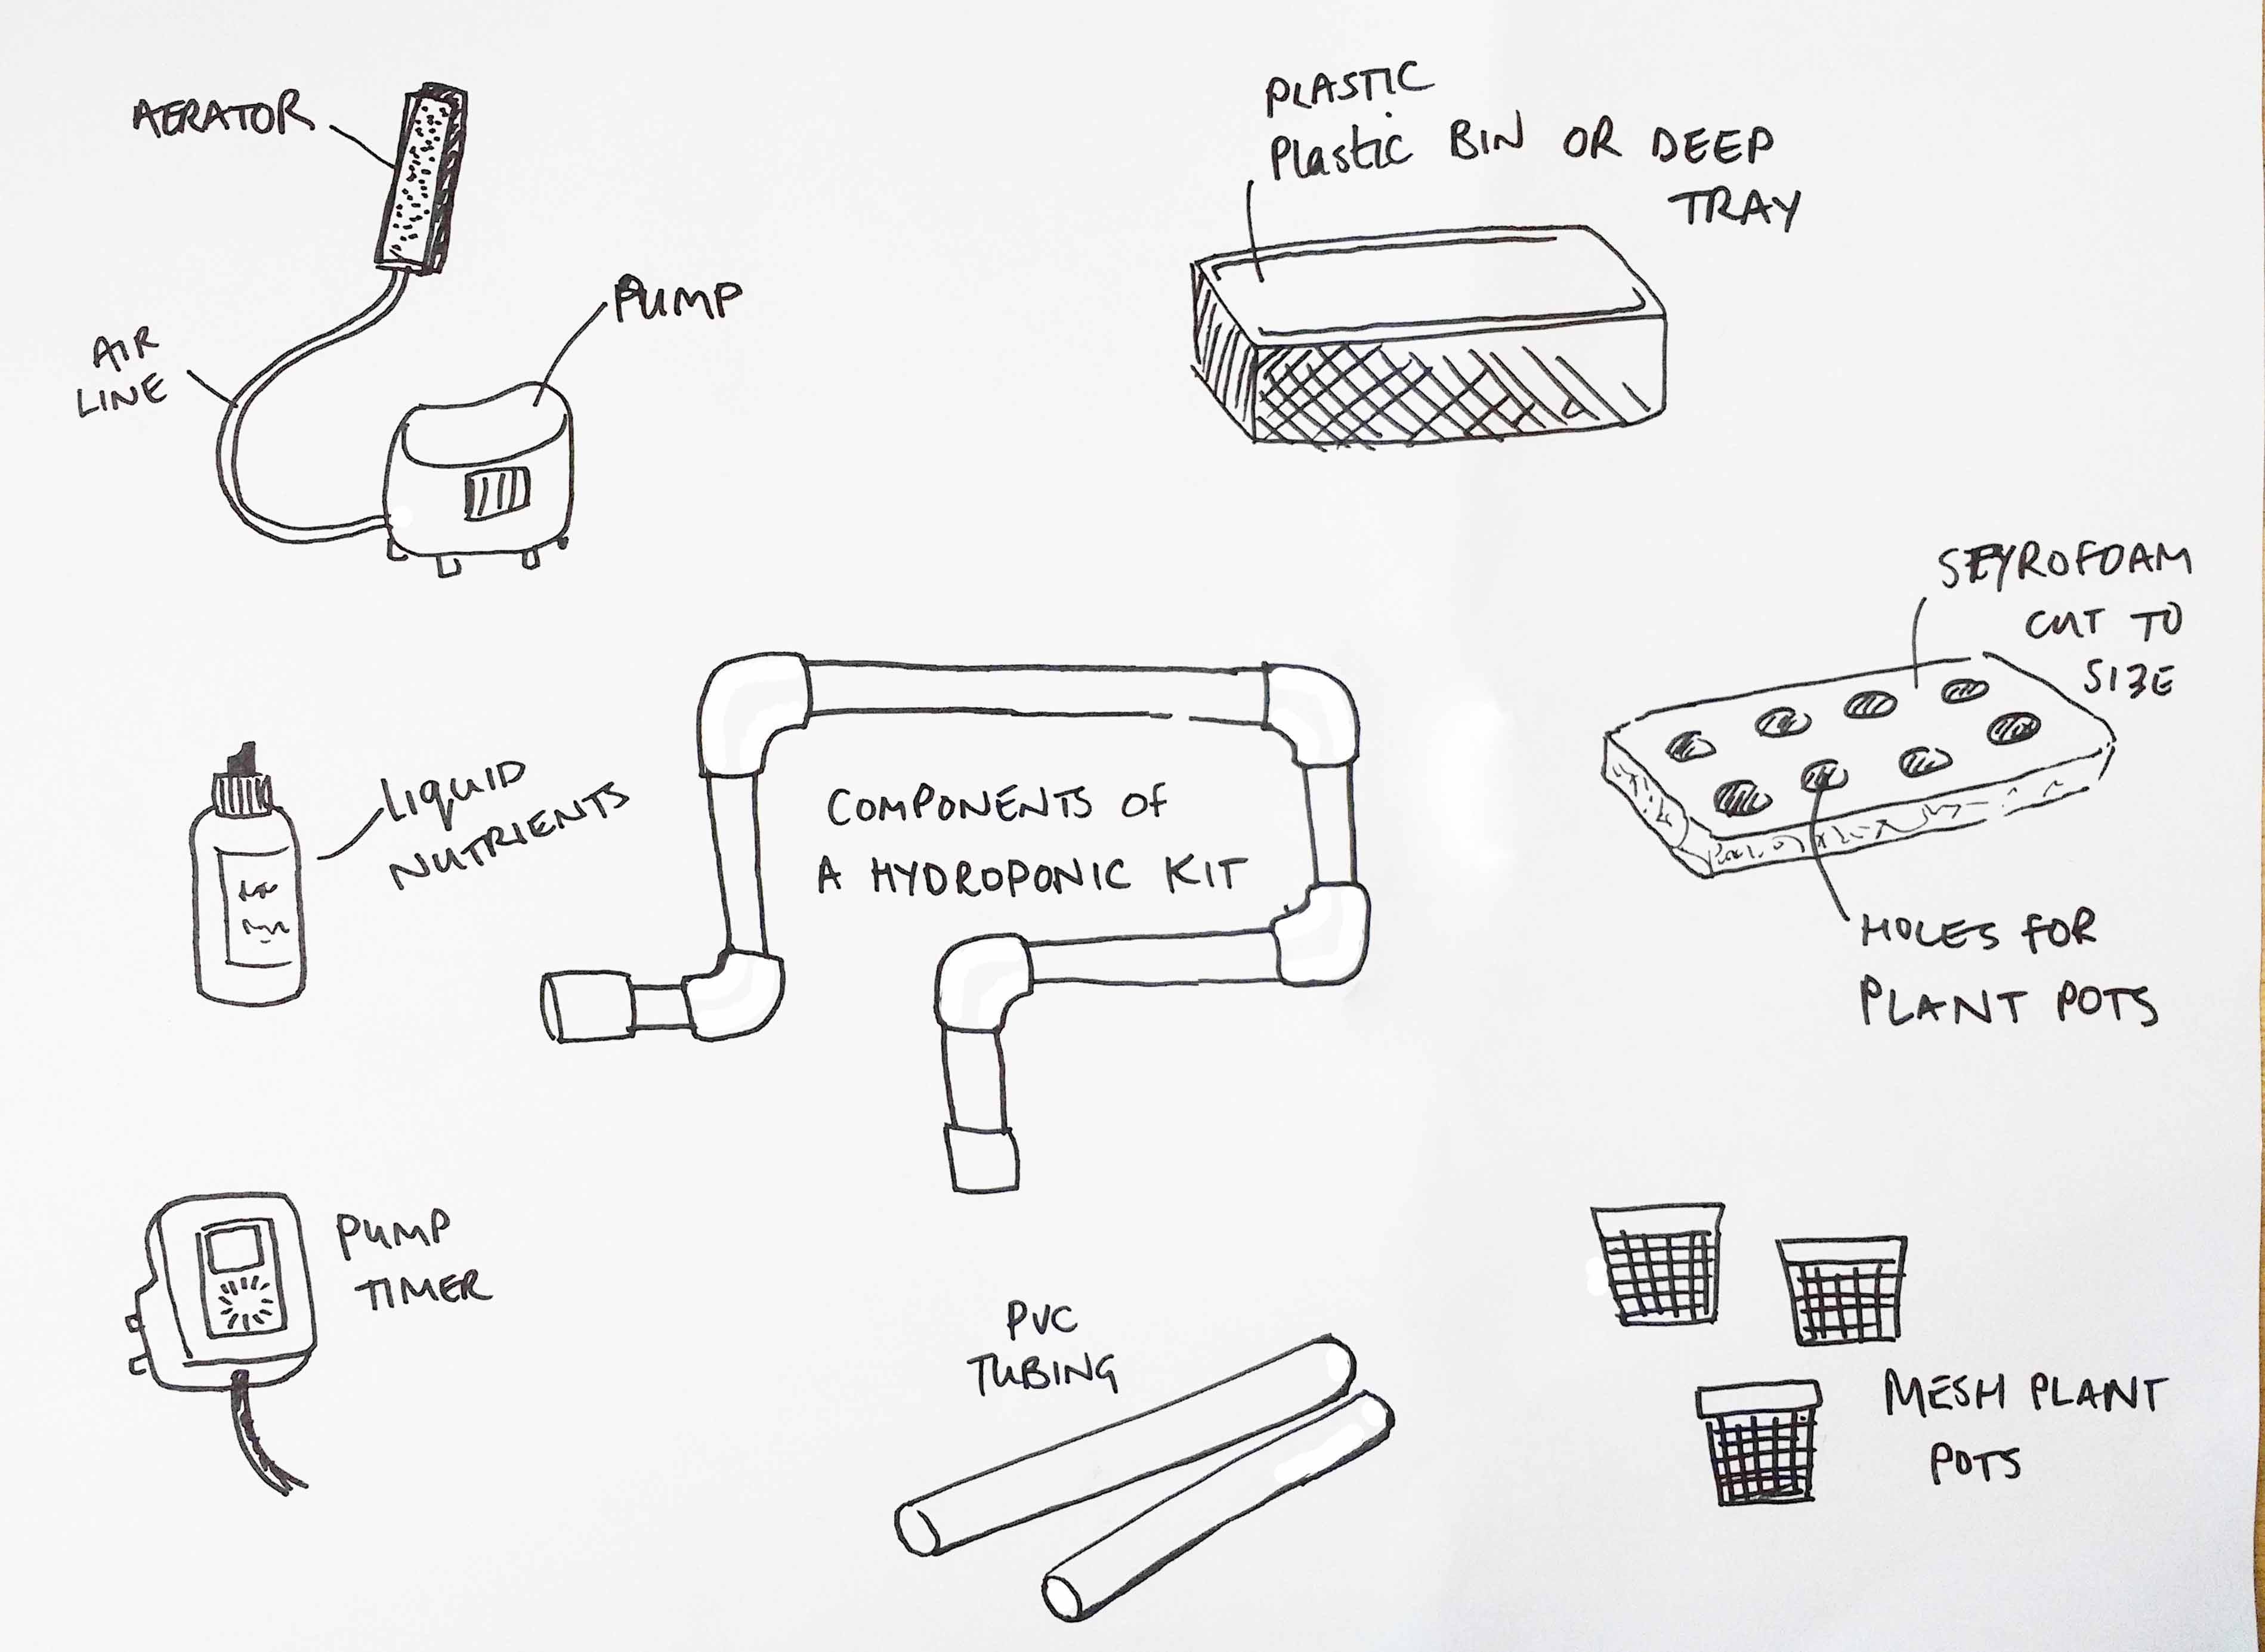 AERATOR
PUMP
AIR
LINE
PLASTIC
Plastic BIN OR DEEP
TRAY
SEYROFOAM
CUT TO
SIZE
HOLES FOR
PLANT POTS
LIQUID
NUTRIENTS
COMPONENTS OF
A HYDROPONIC KIT
PUMP
TIMER
PVC
TUBING
MESH PLANT
POTS